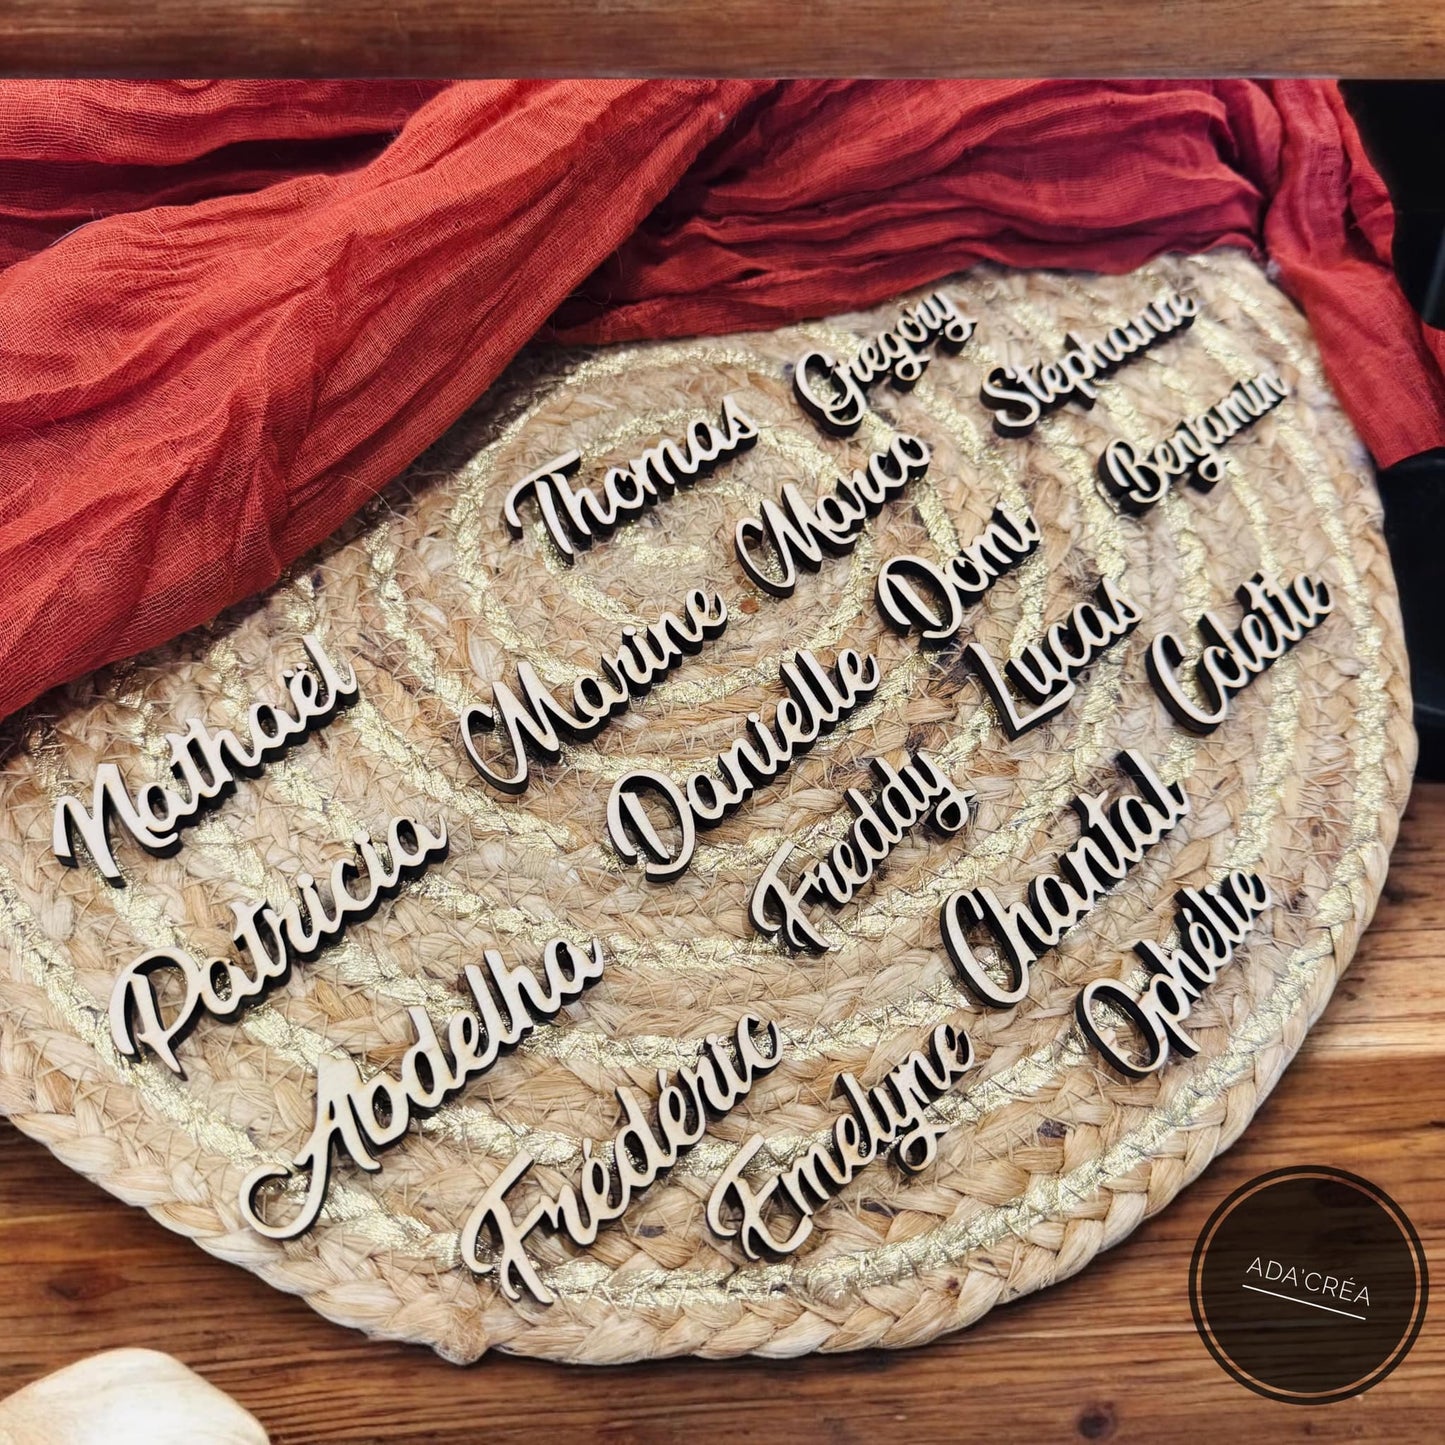 Gregory
Stephanie
Thomas
Marco
Benjamin
Marine
Domi
Lucas
Colette
Nathaël
Danielle
Freddy
Chantal
Patricia
Abdelha
Ophélie
Frédéric
Emelyne
ADA'CRÉA